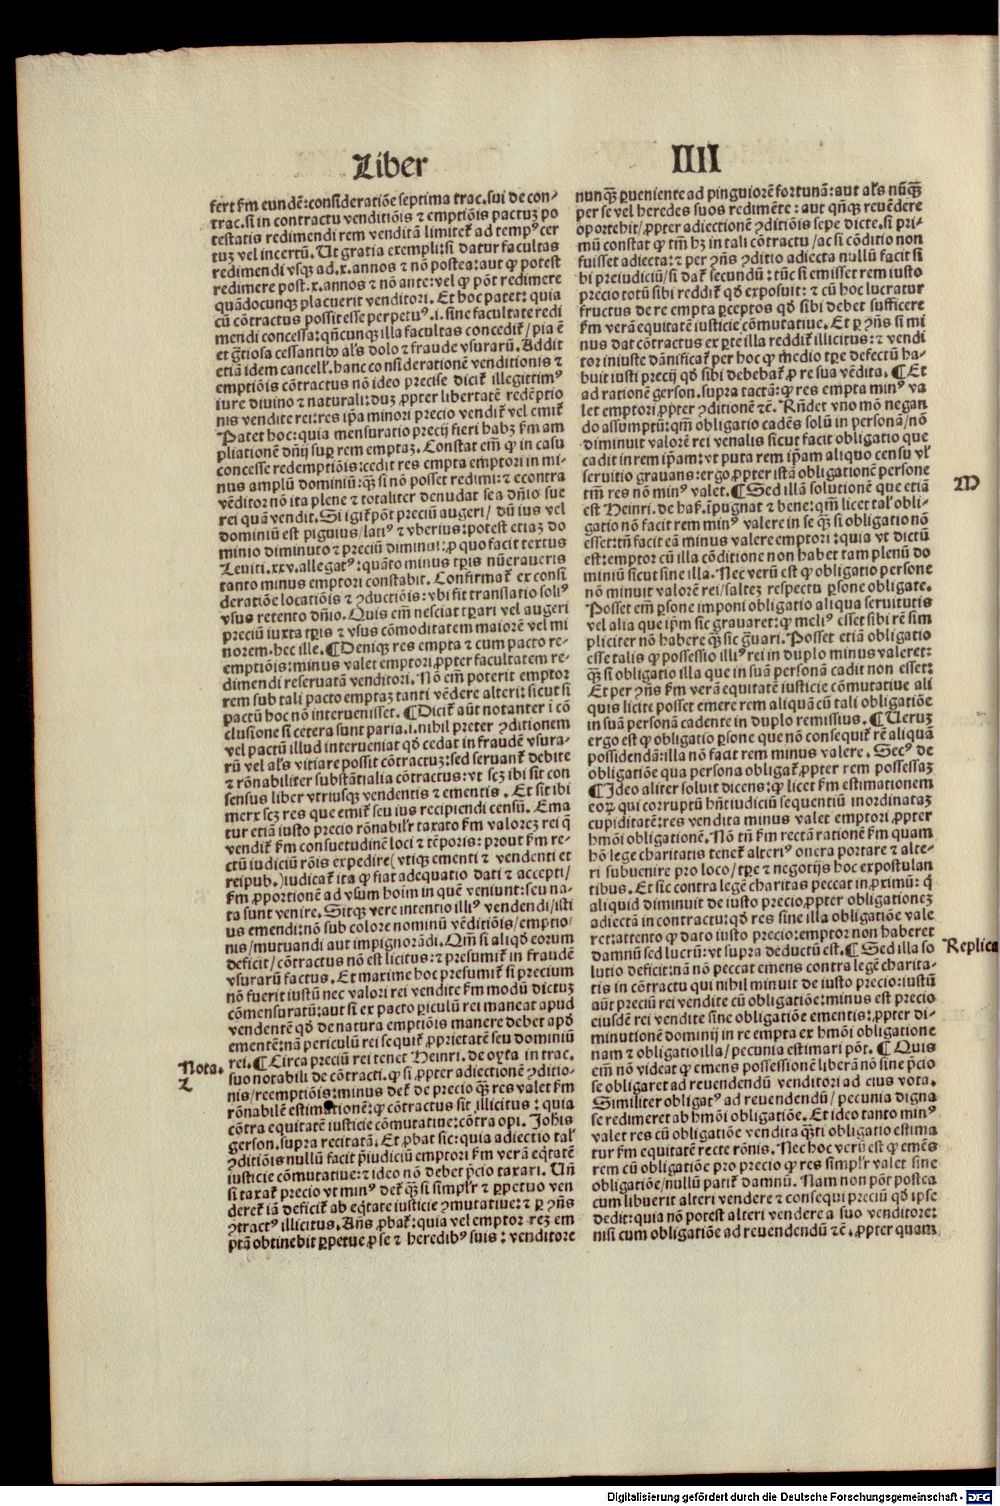 Liber IIII
fert km̄ eundē: consideratiōe septima trac. sui de con-
trac. si in contractu venditiōis ⁊ emptiōis pactuʒ po
testatis redimendi rem venditā limitet̄ ad tempꝰ cer
tuʒ vel incertū. Ut gratia exempli: si datur facultas
redimendi vsqꝫ ad .x. annos ⁊ nō postea: aut ꝙ potest
redimere post .x. annos ⁊ nō ante: vel ꝙ pōt redimere
quādocunqꝫ placuerit venditori. Et hoc patet: quia
cū cōtractus possit esse perpetuꝰ .i. sine facultate redi
mendi concessa: qn̄cunqꝫ illa facultas concedit̄ / pia ē
et gr̄tiosa cessantibꝰ al's dolo ⁊ fraude vsurarū. Addit
etiā idem cancell'. hanc considerationē venditionis ⁊
emptiōis cōtractus nō ideo precise dicit̄ illegittimꝰ
iure diuino ⁊ naturali: duʒ ꝓpter libertatē redēptio
nis vendite rei: res ip̄a minori precio vendit̄ vel emit̄
Patet hoc: quia mensuratio precij fieri habʒ km̄ am
pliationē dn̄ij suꝑ rem emptaʒ. Constat em̄ ꝙ in casu
concesse redemptiōis: cedit res empta emptori in mi-
nus amplū dominiū: qꝫ̄ si nō posset redimi: ⁊ econtra
vēditor nō ita plene ⁊ totaliter denudat se a dn̄io sue
rei quā vendit. Si igit̄ pōt preciū augeri / dū ius vel
dominiū est piguius / latiꝰ ⁊ vberius: potest etiaʒ do
minio diminuto ⁊ preciū diminui: ꝓ quo facit textus
Leuiti. xxv. allegatꝰ: quāto minus tp̄ris nūeraueris
tanto minus emptori constabit. Confirmat̄ ex consi
deratiōe locatiōis ⁊ ꝯductiōis: vbi fit translatio soliꝰ
vsus retento dn̄io. Quis em̄ nesciat tꝑari vel augeri
preciū iuxta tp̄ris ⁊ vsus cōmoditatem maiorē vel mi
norem. hec ille. ¶ Deniqꝫ res empta ⁊ cum pacto re-
emptiōis: minus valet emptori ꝓpter facultatem re-
dimendi reseruatā venditori. Nō em̄ poterit emptor
rem sub tali pacto emptaʒ tanti vēdere alteri: sicut si
pactū hoc nō interuenisset. ¶ Dicit̄ aūt notanter ī cō
clusione si cetera sunt paria .i. nihil preter ꝯditionem
vel pactū illud interueniat qd̄ cedat in fraudē vsura-
rū vel al's vitiare possit cōtractuʒ: sed seruant̄ debite
⁊ rōnabiliter substātialia cōtractus: vt scʒ ibi sit con
sensus liber vtriusqꝫ vendentis ⁊ ementis. Et sit ibi
merx scʒ res que emit̄ seu ius recipiendi censū. Ema
tur etiā iusto precio rōnabil'r taxato km̄ valoreʒ rei q̄
vendit̄ km̄ consuetudinē loci ⁊ tēporis: prout km̄ re-
ctū iudiciū rōis expedire (vtiqꝫ ementi ⁊ vendenti et
reipub.) iudicat̄ ita ꝙ fiat adequatio dati ⁊ accepti /
km̄ ꝓportionē ad vsum hoīm in quē veniunt: seu na-
ta sunt venire. Sitqꝫ vere intentio illiꝰ vendendi / isti
us emendi: nō sub colore nominū vēditiōis / emptio /
nis / mutuandi aut impignorādi. Qm̄ si aliqd̄ eorum
deficit / cōtractus nō est licitus: ⁊ presumit̄ in fraudē
vsurarū factus. Et maxime hoc presumit̄ si precium
nō fuerit iustū nec valori rei vendite km̄ modū dictuʒ
cōmensuratū: aut si ex pacto ꝑiculū rei maneat apud
vendentē qd̄ de natura emptiōis manere debet apd̄
ementē: nā periculū rei sequit̄ ꝓprietatē seu dominiū
rei. ¶ Circa preciū rei tenet Heinri. de oyta in trac.
suo notabili de cōtracti. ꝙ si ꝓpter adiectionē ꝯditio-
nis / reemptiōis: minus det̄ de precio qꝫ̄ res valet km̄
rōnabilē estimationē: ꝙ cōtractus sit illicitus: quia
cōtra equitatē iusticie cōmutatiue: cōtra opi. Joh̄is
gerson. supra recitatā. Et ꝓbat sic: quia adiectio tal'
ꝯditiōis nullū facit p̄iudiciū emptori km̄ verā eq̄tatē
iusticie cōmutatiue: ⁊ ideo nō debet p̄cio taxari. Un̄
si taxat̄ precio vt minꝰ det̄ qꝫ̄ si simpl'r ⁊ ꝑpetuo ven
deret̄ iā deficit̄ ab eq̄tate iusticie ꝯmutatiue: ⁊ ꝑ ꝯn̄s
ꝯtractꝰ illicitus. An̄s ꝓbat̄: quia vel emptor reʒ em
ptā obtinebit ꝑpetue ꝓ se ⁊ heredibꝰ suis: venditore
Nota.
L
nunqꝫ̄ ꝑueniente ad pinguiorē fortunā: aut al's nūqꝫ̄
per se vel heredes suos redimēte: aut qn̄qꝫ reuēdere
oportebit / ꝓpter adiectionē ꝯditiōis sepe dicte. si pri-
mū constat ꝙ tm̄ hʒ in tali cōtractu / ac si cōditio non
fuisset adiecta: ⁊ per ꝯn̄s ꝯditio adiecta nullū facit si
bi preiudiciū / si dat̄ secundū: tūc si emisset rem iusto
precio totū sibi reddit̄ qd̄ exposuit: ⁊ cū hoc lucratur
fructus de re empta ꝑceptos qd̄ sibi debet sufficere
km̄ verā equitatē iusticie cōmutatiue. Et ꝑ ꝯn̄s si mi
nus dat cōtractus ex ꝑte illa reddit̄ illicitus: ⁊ vendi
tor iniuste dānificat̄ per hoc ꝙ medio tp̄re defectū ha-
buit iusti precij qd̄ sibi debebat̄ ꝓ re sua vēdita. ¶ Et
ad rationē gerson. supra tactā: ꝙ res empta minꝰ va
let emptori ꝓpter ꝯditionē ⁊c̄. Rn̄det vno mō negan
do assumptū: qm̄ obligatio cadēs solū in personā / nō
diminuit valorē rei venalis sicut facit obligatio que
cadit in rem ip̄am: vt puta rem ip̄am aliquo censu vl'
seruitio grauans: ergo ꝓpter istā obligationē persone
tm̄ res nō minꝰ valet. ¶ Sed illā solutionē que etiā
est Heinri. de haß. īpugnat ⁊ bene: qm̄ licet tal' obli-
gatio nō facit rem minꝰ valere in se qꝫ̄ si obligatio nō
esset: tn̄ facit eā minus valere emptori: quia vt dictū
est: emptor cū illa cōditione non habet tam plenū do
miniū sicut sine illa. Nec verū est ꝙ obligatio persone
nō minuit valorē rei / salteʒ respectu ꝑsone obligate.
Posset em̄ ꝑsone imponi obligatio aliqua seruitutis
vel alia que ip̄m sic grauaret: ꝙ meliꝰ esset sibi rē sim
pliciter nō habere qꝫ̄ sic gr̄uari. Posset etiā obligatio
esse talis ꝙ possessio illiꝰ rei in duplo minus valeret:
qꝫ̄ si obligatio illa que in suā personā cadit non esset:
Et per ꝯn̄s km̄ verā equitatē iusticie cōmutatiue ali
quis licite posset emere rem aliquā cū tali obligatiōe
in suā personā cadente in duplo remissius. ¶ Ueruʒ
ergo est ꝙ obligatio ꝑsone que nō consequit̄ rē aliquā
possidendā: illa nō facit rem minus valere. Secꝰ de
obligatiōe qua persona obligat̄ ꝓpter rem possessaʒ
¶ Ideo aliter soluit dicens: ꝙ licet km̄ estimationem
eoꝝ qui corruptū hn̄t iudiciū sequentiū inordinataʒ
cupiditatē: res vendita minus valet emptori ꝓpter
hmōi obligationē. Nō tn̄ km̄ rectā rationē km̄ quam
hō lege charitatis tenet̄ alteriꝰ onera portare ⁊ alte-
ri subuenire pro loco / tp̄re ⁊ negotijs hoc expostulan
tibus. Et sic contra legē charitas peccat in ꝓximū: q̄
aliquid diminuit de iusto precio ꝓpter obligationeʒ
adiectā in contractu: qd̄ res sine illa obligatiōe vale
ret: attento ꝙ dato iusto precio: emptor non haberet
damnū sed lucrū: vt supra deductū est. ¶ Sed illa so
lutio deficit: nā nō peccat emens contra legē charita-
tis in cōtractu qui nihil minuit de iusto precio: iustū
aūt preciū rei vendite cū obligatiōe: minus est precio
eiusdē rei vendite sine obligatiōe ementis: ꝓpter di-
minutionē dominij in re empta ex hmōi obligatione
nam ⁊ obligatio illa / pecunia estimari pōt. ¶ Quis
em̄ nō videat ꝙ emens possessionē liberā nō sine p̄cio
se obligaret ad reuendendū venditori ad eius vota.
Similiter obligatꝰ ad reuendendū / pecunia digna
se redimeret ab hmōi obligatiōe. Et ideo tanto minꝰ
valet res cū obligatiōe vendita qꝫ̄ti obligatio estima
tur km̄ equitatē recte rōnis. Nec hoc verū est ꝙ emēs
rem cū obligatiōe pro precio ꝙ res simpl'r valet sine
obligatiōe / nullū patit̄ damnū. Nam non pōt postea
cum libuerit alteri vendere ⁊ consequi preciū qd̄ ipse
dedit: quia nō potest alteri vendere a suo venditore:
nisi cum obligatiōe ad reuendendū ⁊c̄. ꝓpter quam
M
Replica
Digitalisierung gefördert durch die Deutsche Forschungsgemeinschaft - DFG